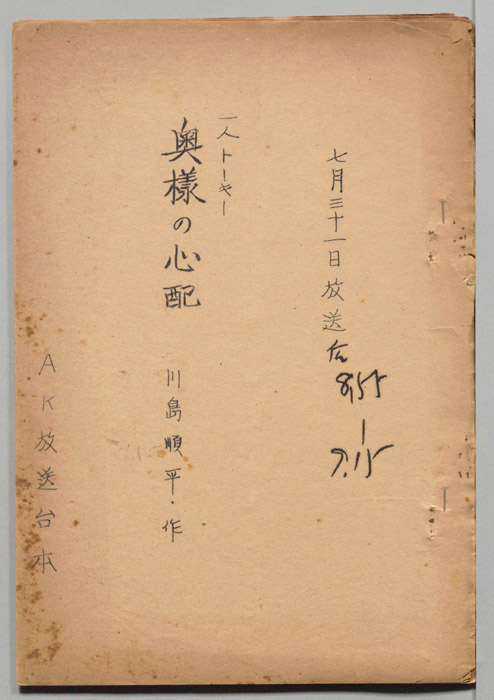 七月三十一日放送 后
8.55
|
9.15
一人トーキー
奥様の心配
川島順平・作
AK放送台本